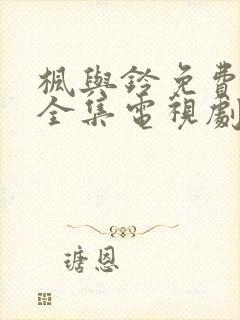 楓與鈴免費
全集電視劇
瑭恩